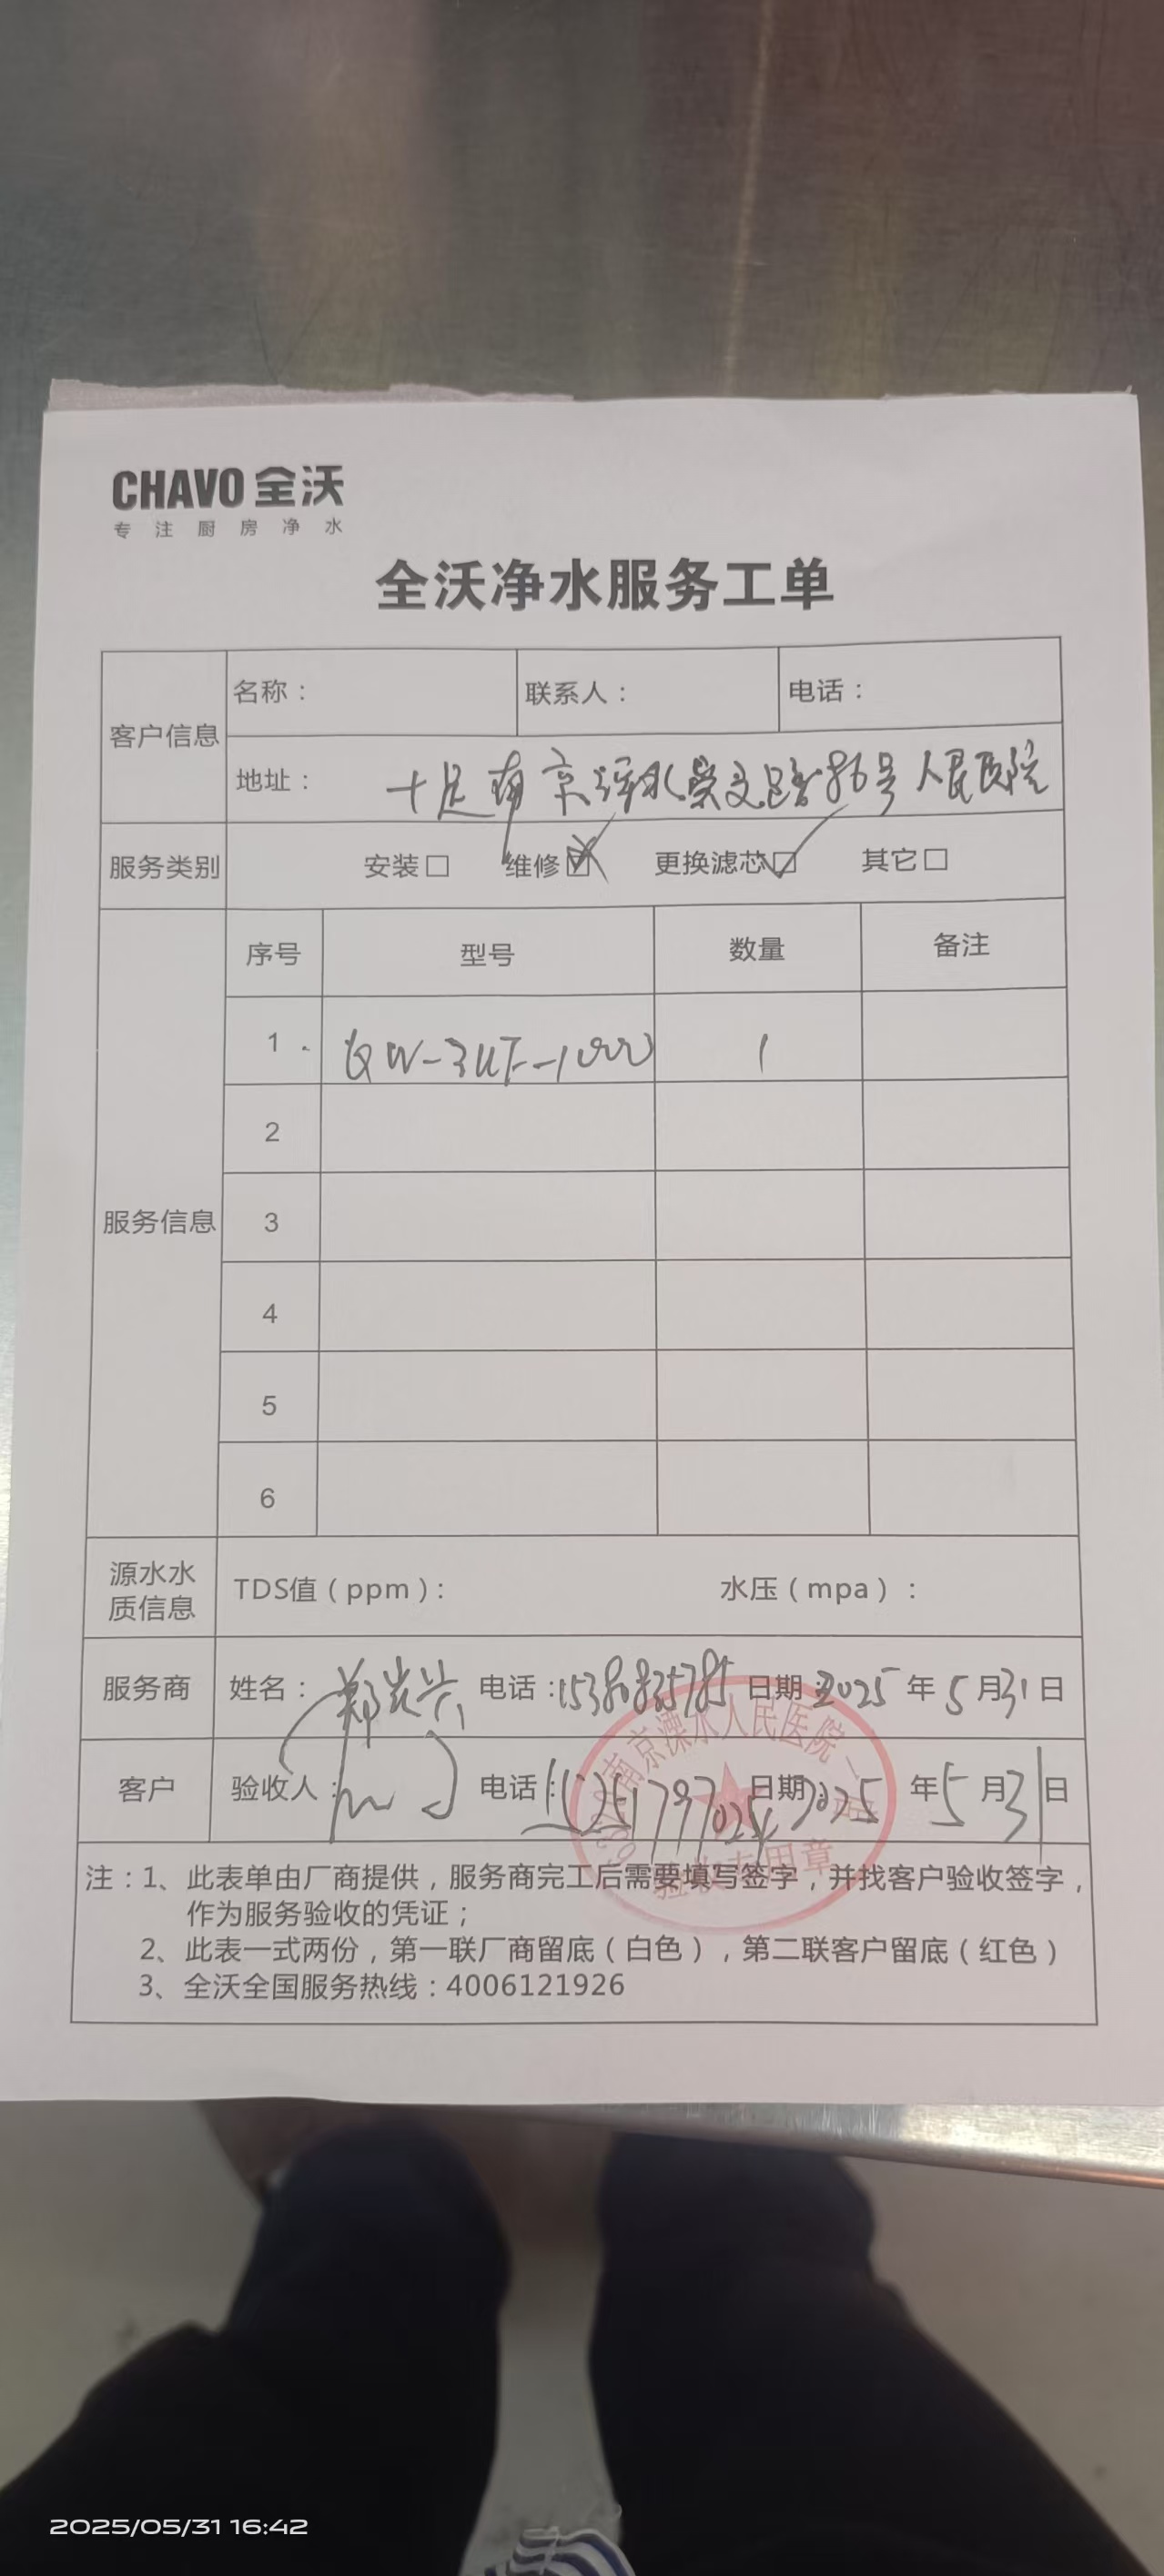 CHAVO 全沃
专注厨房净水
全沃净水服务工单
客户信息
名称： 联系人： 电话：
地址： 十足南京溧水崇文路86号人民医院
服务类别 安装□ 维修☑ 更换滤芯☑ 其它□
服务信息
序号 型号 数量 备注
1 QW-3UF-1000 1
2
3
4
5
6
源水水质信息 TDS值（ppm）： 水压（mpa）：
服务商 姓名： 电话：15380835785 日期：2025年5月31日
客户 验收人： 电话： 日期：2025年5月31日
南京溧水人民医院一店
验收专用章
注：1、此表单由厂商提供，服务商完工后需要填写签字，并找客户验收签字，
作为服务验收的凭证；
2、此表一式两份，第一联厂商留底（白色），第二联客户留底（红色）
3、全沃全国服务热线：4006121926
2025/05/31 16:42